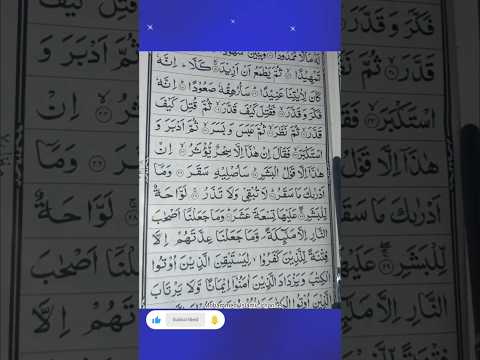 لَهٗ مَالًا مَّمْدُوْدًا ۙ وَّبَنِيْنَ شُهُوْدًا
تَمْهِيْدًا ۙ ثُمَّ يَطْمَعُ اَنْ اَزِيْدَ ۙ كَلَّا ؕ اِنَّهٗ
كَانَ لِاٰيٰتِنَا عَنِيْدًا ؕ سَاُرْهِقُهٗ صَعُوْدًا ؕ اِنَّهٗ
فَكَّرَ وَقَدَّرَ ۙ فَقُتِلَ كَيْفَ قَدَّرَ ۙ ثُمَّ قُتِلَ كَيْفَ
قَدَّرَ ۙ ثُمَّ نَظَرَ ۙ ثُمَّ عَبَسَ وَبَسَرَ ۙ ثُمَّ اَدْبَرَ وَ
اسْتَكْبَرَ ۙ فَقَالَ اِنْ هٰذَاۤ اِلَّا سِحْرٌ يُّؤْثَرُ ۙ اِنْ
هٰذَاۤ اِلَّا قَوْلُ الْبَشَرِ ؕ سَاُصْلِيْهِ سَقَرَ ۲۶ وَمَاۤ
اَدْرٰىكَ مَا سَقَرُ ؕ لَا تُبْقِيْ وَلَا تَذَرُ ۚ لَوَّاحَةٌ
لِّلْبَشَرِ ۖ عَلَيْهَا تِسْعَةَ عَشَرَ ؕ وَمَا جَعَلْنَاۤ اَصْحٰبَ
النَّارِ اِلَّا مَلٰٓئِكَةً ۪ وَّمَا جَعَلْنَا عِدَّتَهُمْ اِلَّا
فِتْنَةً لِّلَّذِيْنَ كَفَرُوْا ۙ لِيَسْتَيْقِنَ الَّذِيْنَ اُوْتُوا
الْكِتٰبَ وَيَزْدَادَ الَّذِيْنَ اٰمَنُوْۤا اِيْمَانًا وَّلَا يَرْتَابَ
Subscribed